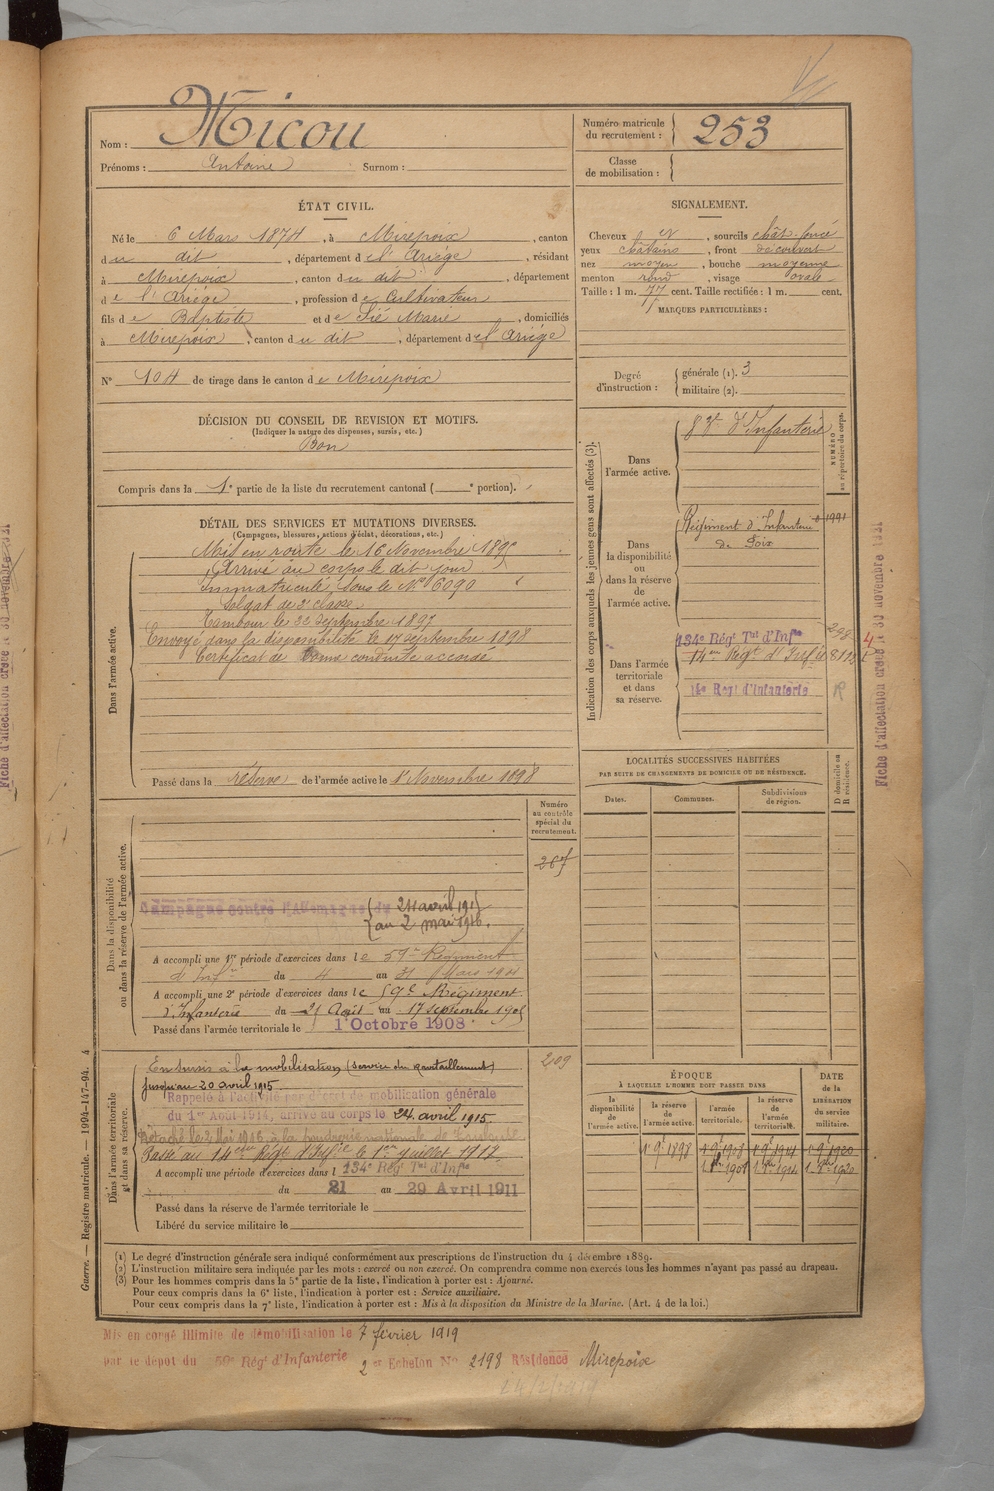 Nom : Micou
Prénoms : Antoine Surnom :
Numéro matricule du recrutement : 253
Classe de mobilisation :
ÉTAT CIVIL.
Né le 6 Mars 1874, à Mirepoix, canton
du dit, département de l'Ariège, résidant
à Mirepoix, canton du dit, département
de l'Ariège, profession de Cultivateur
fils de Baptiste et de Sié Marie, domiciliés
à Mirepoix, canton du dit, département de l'Ariège
N° 104 de tirage dans le canton de Mirepoix
DÉCISION DU CONSEIL DE REVISION ET MOTIFS.
(Indiquer la nature des dispenses, sursis, etc.)
Bon
Compris dans la 1e partie de la liste du recrutement cantonal ( e portion).
SIGNALEMENT.
Cheveux et, sourcils chât. foncé
yeux châtains, front découvert
nez moyen, bouche moyenne
menton rond, visage ovale
Taille : 1 m. 77 cent. Taille rectifiée : 1 m. cent.
MARQUES PARTICULIÈRES :
Degré d'instruction : générale (1). 3
militaire (2).
DÉTAIL DES SERVICES ET MUTATIONS DIVERSES.
(Campagnes, blessures, actions d'éclat, décorations, etc.)
Dans l'armée active.
Mis en route le 16 Novembre 1895
Arrivé au corps le dit jour
Immatriculé sous le N° 6090
Soldat de 2e classe
Tambour le 22 septembre 1897
Envoyé dans la disponibilité le 17 septembre 1898
Certificat de bonne conduite accordé
Passé dans la réserve de l'armée active le 1er Novembre 1898
Indication des corps auxquels les jeunes gens sont affectés (3).
NUMÉRO au répertoire du corps.
Dans l'armée active.
d'Infanterie
Dans la disponibilité ou dans la réserve de l'armée active.
Régiment d'Infanterie 1991
de Foix
Dans l'armée territoriale et dans sa réserve.
134e Régt Tal d'Infie 298
14eme Régt d'Infie
14e Régt d'Infanterie R
Fiche d'affectation créée le 30 novembre 1921
LOCALITÉS SUCCESSIVES HABITÉES
PAR SUITE DE CHANGEMENTS DE DOMICILE OU DE RÉSIDENCE.
Dates. Communes. Subdivisions de région. D domicile ou R résidence.
Numéro au contrôle spécial du recrutement.
267
Dans la disponibilité ou dans la réserve de l'armée active.
Campagne contre l'Allemagne du 24 avril 191
au 2 mai 1916.
A accompli une 1re période d'exercices dans le 59e Régiment
d'Infie du 4 au 31 Mars 190
A accompli une 2e période d'exercices dans le 59e Régiment
d'Infanterie du 21 Août au 17 septembre 1905
Passé dans l'armée territoriale le 1er Octobre 1908
209
Dans l'armée territoriale et dans sa réserve.
En sursis à la mobilisation (service du ravitaillement)
jusqu'au 20 avril 1915
Rappelé à l'activité par décret de mobilisation générale
du 1er Août 1914, arrivé au corps le 24 avril 1915.
Détaché le 2 Mai 1916 à la poudrerie nationale de Toulouse
Passé au 14eme Régt d'Infie le 1er juillet 1917.
A accompli une période d'exercices dans l 134e Régt Tal d'Infie
du 21 au 29 Avril 1911
Passé dans la réserve de l'armée territoriale le
Libéré du service militaire le
ÉPOQUE
À LAQUELLE L'HOMME DOIT PASSER DANS
la disponibilité de l'armée active. la réserve de l'armée active. l'armée territoriale. la réserve de l'armée territoriale. DATE de la LIBÉRATION du service militaire.
(1) Le degré d'instruction générale sera indiqué conformément aux prescriptions de l'instruction du 4 décembre 1889.
(2) L'instruction militaire sera indiquée par les mots : exercé ou non exercé. On comprendra comme non exercés tous les hommes n'ayant pas passé au drapeau.
(3) Pour les hommes compris dans la 5e partie de la liste, l'indication à porter est : Ajourné.
Pour ceux compris dans la 6e liste, l'indication à porter est : Service auxiliaire.
Pour ceux compris dans la 7e liste, l'indication à porter est : Mis à la disposition du Ministre de la Marine. (Art. 4 de la loi.)
Guerre. — Registre matricule. — 1994-147-94. 4
Mis en congé illimité de démobilisation le 7 février 1919
par le dépot du 59e Régt d'Infanterie 2 er Echelon N° 2198 Résidence Mirepoix